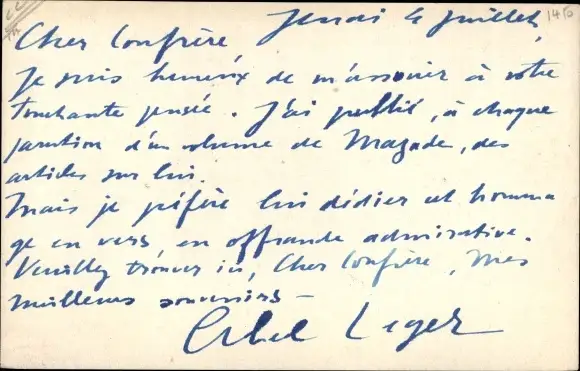 Jeudi 4 Juillet,
Cher Confrère,
Je suis heureux de m'associer à votre
touchante pensée. J'ai publié, à chaque
parution d'un volume de Magade, des
articles sur lui.
Mais je préfère lui dédier cet homma
ge en vers, en offrande admirative.
Veuillez trouver ici, Cher Confrère, mes
meilleurs souvenirs —
Abel Leger